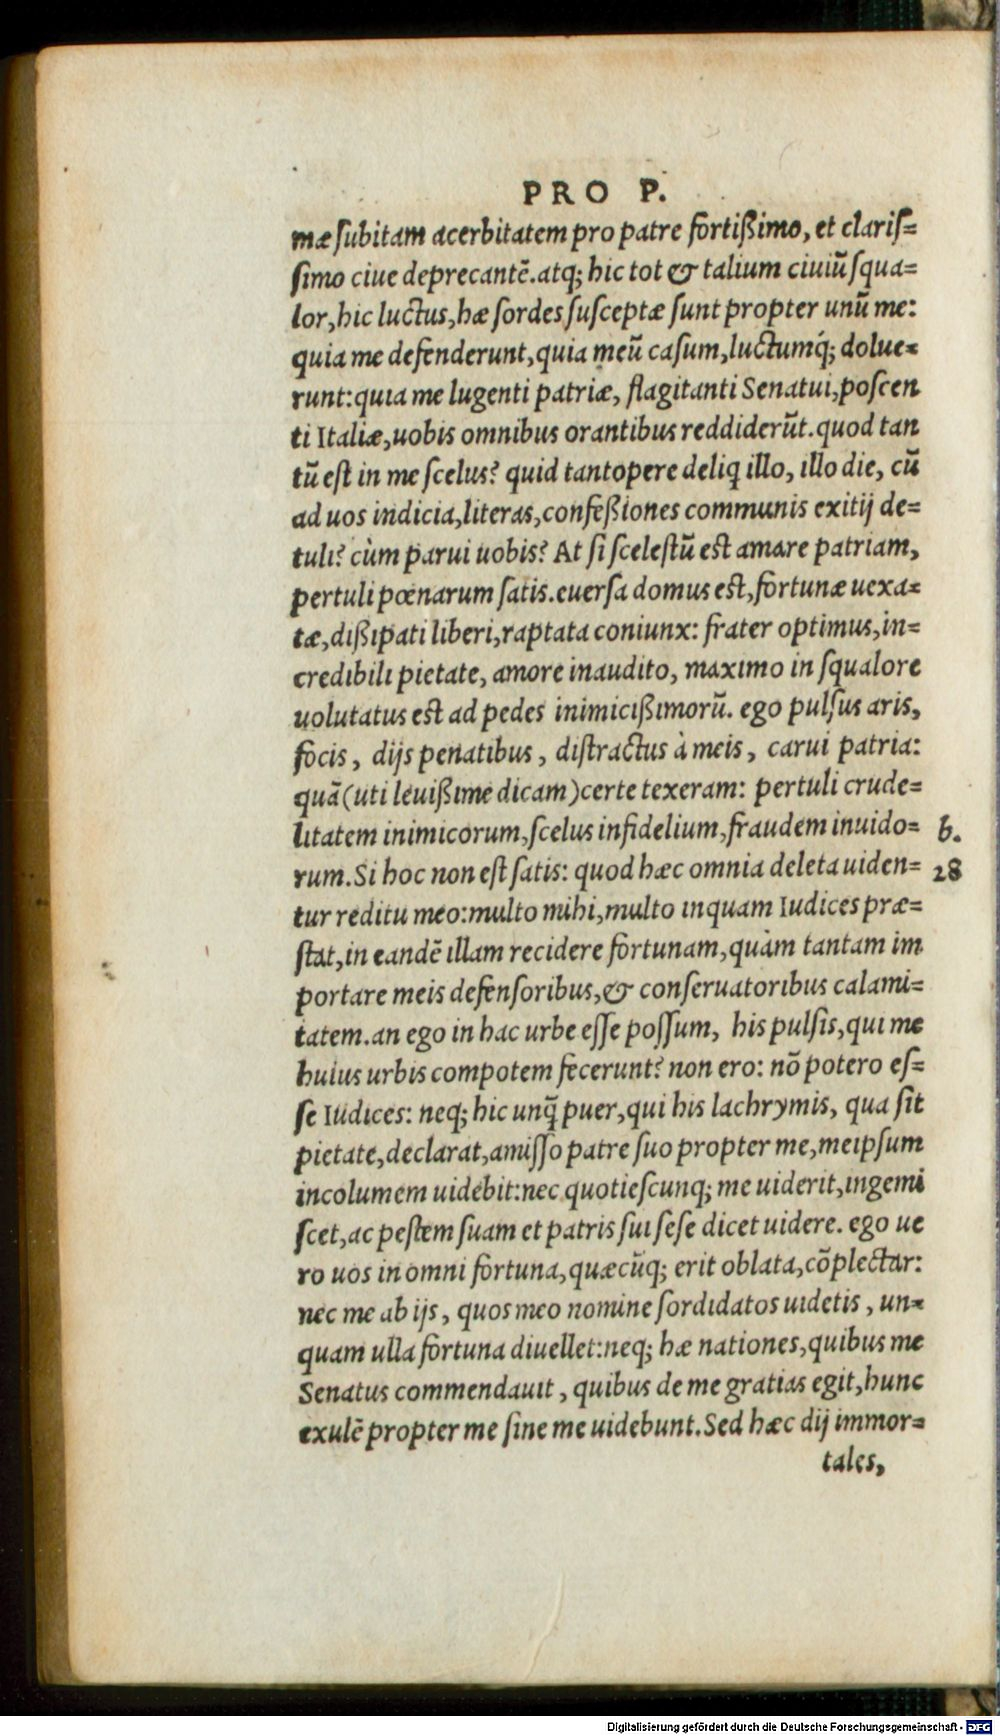 PRO P.
mæ ſubitam acerbitatem pro patre fortißimo, et clariſ=
ſimo ciue deprecantē.atq; hic tot & talium ciuiū ſqua=
lor,hic luctus,hæ ſordes ſuſceptæ ſunt propter unū me:
quia me defenderunt,quia meū caſum,luctumq́; dolue=
runt:quia me lugenti patriæ, flagitanti Senatui,poſcen
ti Italiæ,uobis omnibus orantibus reddiderūt.quod tan
tū eſt in me ſcelus? quid tantopere deliq̨ illo, illo die, cū
ad uos indicia,literas,confeßiones communis exitij de=
tuli? cùm parui uobis? At ſi ſceleſtū eſt amare patriam,
pertuli pœnarum ſatis.euerſa domus eſt,fortunæ uexa=
tæ,dißipati liberi,raptata coniunx: frater optimus,in=
credibili pietate, amore inaudito, maximo in ſqualore
uolutatus eſt ad pedes inimicißimorū. ego pulſus aris,
focis, dijs penatibus, diſtractus à meis, carui patria:
quā(uti leuißime dicam)certe texeram: pertuli crude=
litatem inimicorum,ſcelus infidelium,fraudem inuido=
b.
rum.Si hoc non eſt ſatis: quod hæc omnia deleta uiden=
28
tur reditu meo:multo mihi,multo inquam Iudices præ=
ſtat,in eandē illam recidere fortunam,quàm tantam im
portare meis defenſoribus,& conſeruatoribus calami=
tatem.an ego in hac urbe eſſe poſſum, his pulſis,qui me
huius urbis compotem fecerunt? non ero: nō potero eſ=
ſe Iudices: neq; hic unq̨̃ puer,qui his lachrymis, qua ſit
pietate,declarat,amiſſo patre ſuo propter me,meipſum
incolumem uidebit:nec quotieſcunq; me uiderit,ingemi
ſcet,ac peſtem ſuam et patris ſui ſeſe dicet uidere. ego ue
ro uos in omni fortuna,quæcūq; erit oblata,cōplectar:
nec me ab ijs, quos meo nomine ſordidatos uidetis, un=
quam ulla fortuna diuellet:neq; hæ nationes,quibus me
Senatus commendauit, quibus de me gratias egit,hunc
exulē propter me ſine me uidebunt.Sed hæc dij immor=
tales,
Digitalisierung gefördert durch die Deutsche Forschungsgemeinschaft - DFG